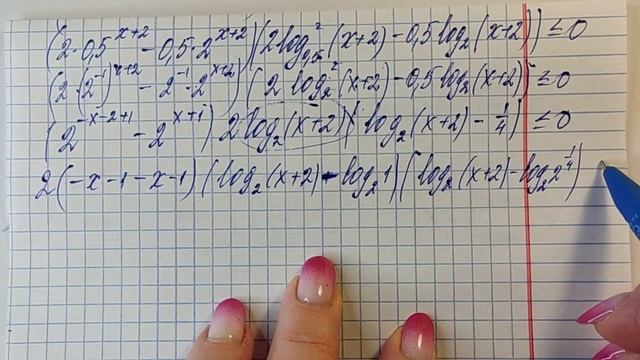 (2·0,5^{x+2} - 0,5·2^{x+2})(2log²_{0,5}(x+2) - 0,5log₂(x+2)) ≤ 0
(2·(2^{-1})^{x+2} - 2^{-1}·2^{x+2})(2log₂²(x+2) - 0,5log₂(x+2)) ≤ 0
(2^{-x-2+1} - 2^{x+1}) 2log₂(x+2)(log₂(x+2) - 1/4) ≤ 0
2(-x-1-x-1)(log₂(x+2) - log₂1)(log₂(x+2) - log₂2^{1/4})